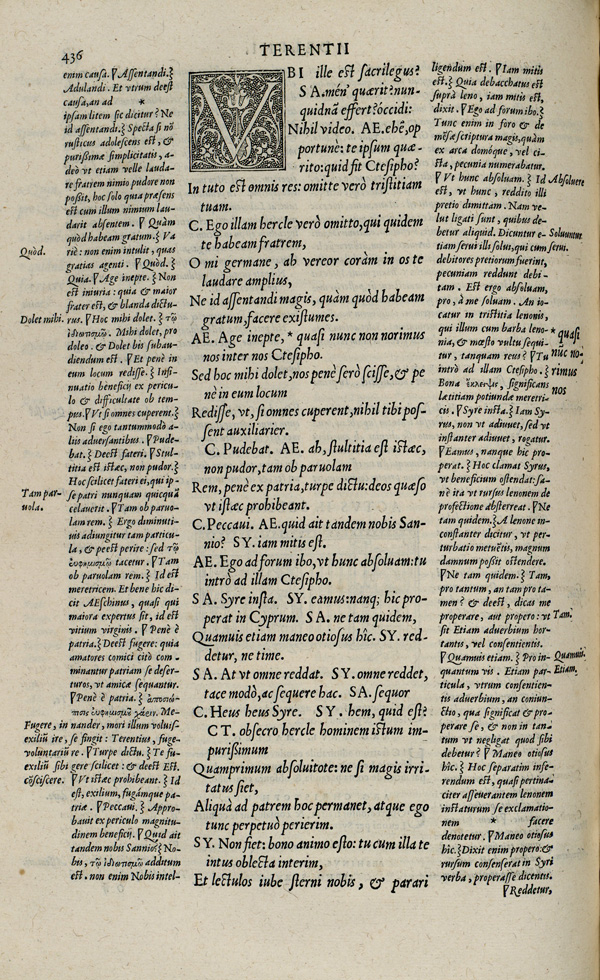 436
TERENTII
enim causa. ꝟAssentandi.}
Adulandi. Et vtrum deest
causa, an ad *
ipsam litem sic dicitur? Ne
id assentandi.} Specta si nō
rusticus adolescens est, &
purißimæ simplicitatis, a-
deò vt etiam velle lauda-
re fratrem nimio pudore non
poßit, hoc solo quia præsens
est cum illum nimium lau-
darit absentem. ꝟ Quàm
quòd habeam gratum.} Va
riè: non enim intulit, quas
gratias agenti. ꝟ Quòd.}
Quia. ꝟ Age inepte.} Non
est iniuria: quia & maior
frater est, & blanda dictu-
rus. ꝟ Hoc mihi dolet. }
ἰδιωτισμῷ. Mihi dolet, pro
doleo. & Dolet bis subau-
diendum est. ꝟ Et penè in
eum locum redisse. } Insi-
nuatio beneficij ex pericu-
lo & difficultate ob tem-
pus. ꝟVt si omnes cuperent.}
Non si ego tantummodò a-
liis aduersantibus. ꝟ Pude-
bat.} Deest fateri. ꝟ Stul-
titia est istæc, non pudor.}
Hoc scilicet fateri ei, qui ip-
se patri nunquam quicquā
celauerit. ꝟ Tam ob paruo-
lam rem. } Ergo diminuti-
uis adiungitur tam particu-
la, & peest perire: sed τῷ
εὐφημισμῷ tacetur. ꝟ Tam
ob paruolam rem. } Id est
meretricem. Et bene hic di-
cit AEschinus, quasi qui
maiora expertus sit, id est
vitium virginis. ꝟ Penè è
patria.} Deest fugere: quia
amatores comici citò com-
minantur patriam se deser-
turos, vt amicæ sequantur.
ꝟPenè è patria. } ἀποσιώ-
πησις εὐφημισμοῦ χάριν. Me-
Fugere, in nander, mori illum voluis-
exiliū ire, se fingit: Terentius, fuge-
voluntariū re. ꝟ Turpe dictu. } Te fu-
exiliū sibi gere scilicet: & deest Est.
cōsciscere. ꝟVt istæc prohibeant.} Id
est, exilium, fugámque pa-
triæ. ꝟ Peccaui. } Appro-
bauit ex periculo magnitu-
dinem beneficij. ꝟQuid ait
tandem nobis Sannio?} No-
bis, τῷ ἰδιωτισμῷ additum
est. non enim Nobis intel-
Quòd.
Dolet mihi.
Tam par-
uola.
VBI ille est sacrilegus?
SA.mén' quærit?nun-
quidnā effert?óccidi:
Nihil video. AE.ehē,op
portunè: te ipsum quæ-
rito:quid fit Ctesipho?
In tuto est omnis res: omitte verò tristitiam
tuam.
C. Ego illam hercle verò omitto,qui quidem
te habeam fratrem,
O mi germane, ah vereor coràm in os te
laudare amplius,
Ne id assentandi magis, quàm quòd habeam
gratum,facere existumes.
AE. Age inepte, * quasi nunc non norimus
nos inter nos Ctesipho.
Sed hoc mihi dolet,nos penè serò scisse,& pe
nè in eum locum
Redisse, vt, si omnes cuperent,nihil tibi pos-
sent auxiliarier.
C. Pudebat. AE. ah, stultitia est istæc,
non pudor,tam ob paruolam
Rem, penè ex patria,turpe dictu:deos quæso
vt istæc prohibeant.
C.Peccaui. AE.quid ait tandem nobis San-
nio? SY.iam mitis est.
AE. Ego ad forum ibo,vt hunc absoluam:tu
intrò ad illam Ctesipho.
SA. Syre insta. SY. eamus:nanq; hic pro-
perat in Cyprum. SA. ne tam quidem,
Quamuis etiam maneo otiosus hîc. SY. red-
detur, ne time.
SA. At vt omne reddat. SY. omne reddet,
tace modò,ac sequere hac. SA.sequor
C. Heus heus Syre. SY. hem, quid est?
CT. obsecro hercle hominem istum im-
purißimum
Quamprimum absoluitote: ne si magis irri-
tatus siet,
Aliquà ad patrem hoc permanet,atque ego
tunc perpetuò perierim.
SY. Non fiet: bono animo esto: tu cum illa te
intus oblecta interim,
Et lectulos iube sterni nobis, & parari
ligendum est. ꝟIam mitis
est.} Quia debacchatus est
suprà leno, iam mitis est,
dixit. ꝟ Ego ad forum ibo.}
Tunc enim in foro & de
mēsæ scriptura magis,quàm
ex arca domóque, vel ci-
sta, pecunia numerabatur.
ꝟ Vt hunc absoluam.} Id
est, vt hunc, reddito illi
pretio dimittam. Nam ve-
lut ligati sunt, quibus de-
betur aliquid. Dicuntur e-
tiam serui illi solui, qui cum
debitores pretiorum fuerint,
pecuniam reddunt debi-
tam. Est ergo absoluam,
pro, à me soluam. An io-
catur in tristitia lenonis,
qui illum cum barba leno-
nia, & mœsto vultu sequi-
tur, tanquam reus? ꝟTu
intrò ad illam Ctesipho. }
Bona ἔκλειψις, significans
lætitiam potiundæ meretri-
cis. ꝟSyre insta.} Iam Sy-
rus, non vt adiuuet, sed vt
instanter adiuuet, rogatur.
ꝟEamus, nanque hic pro-
perat.} Hoc clamat Syrus,
vt beneficium ostendat: sa-
nè ita vt rursus lenonem de
profectione absterreat. ꝟNe
tam quidem.} A lenone in-
constanter dicitur, vt per-
turbatio metuētis, magnum
damnum poßit ostendere.
ꝟNe tam quidem.} Tam,
pro tantum, an tam pro ta-
men? & deest, dicas me
properare, aut propero: vt
sit Etiam aduerbium hor-
tantis, vel consentientis.
ꝟQuamuis etiam.} Pro in-
quantum vis. Etiam par-
ticula, vtrum consentien-
tis aduerbium, an coniun-
ctio, qua significat & pro-
perare se, & non in tan-
tum vt negligat quod sibi
debetur? ꝟ Maneo otiosus
hîc.} Hoc separatim infe-
rendum est, quasi pertina-
citer asseuerantem lenonem
instaturum se exclamatio-
nem * facere
denotetur. ꝟManeo otiosus
hîc.}Dixit enim propero:&
rursum consenserat in Syri
verba, properasse dicentis.
ꝟReddetur,
Absoluere
Soluuntur
serui.
* quasi
nuc no-
rimus
nos
Tam.
Quamuis.
Etiam.